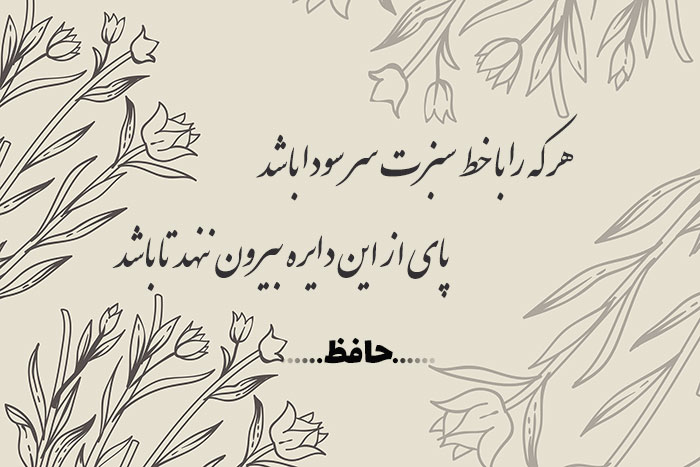 هر که را با خط سبزت سر سودا باشد
پای از این دایره بیرون ننهد تا باشد
......حافظ......